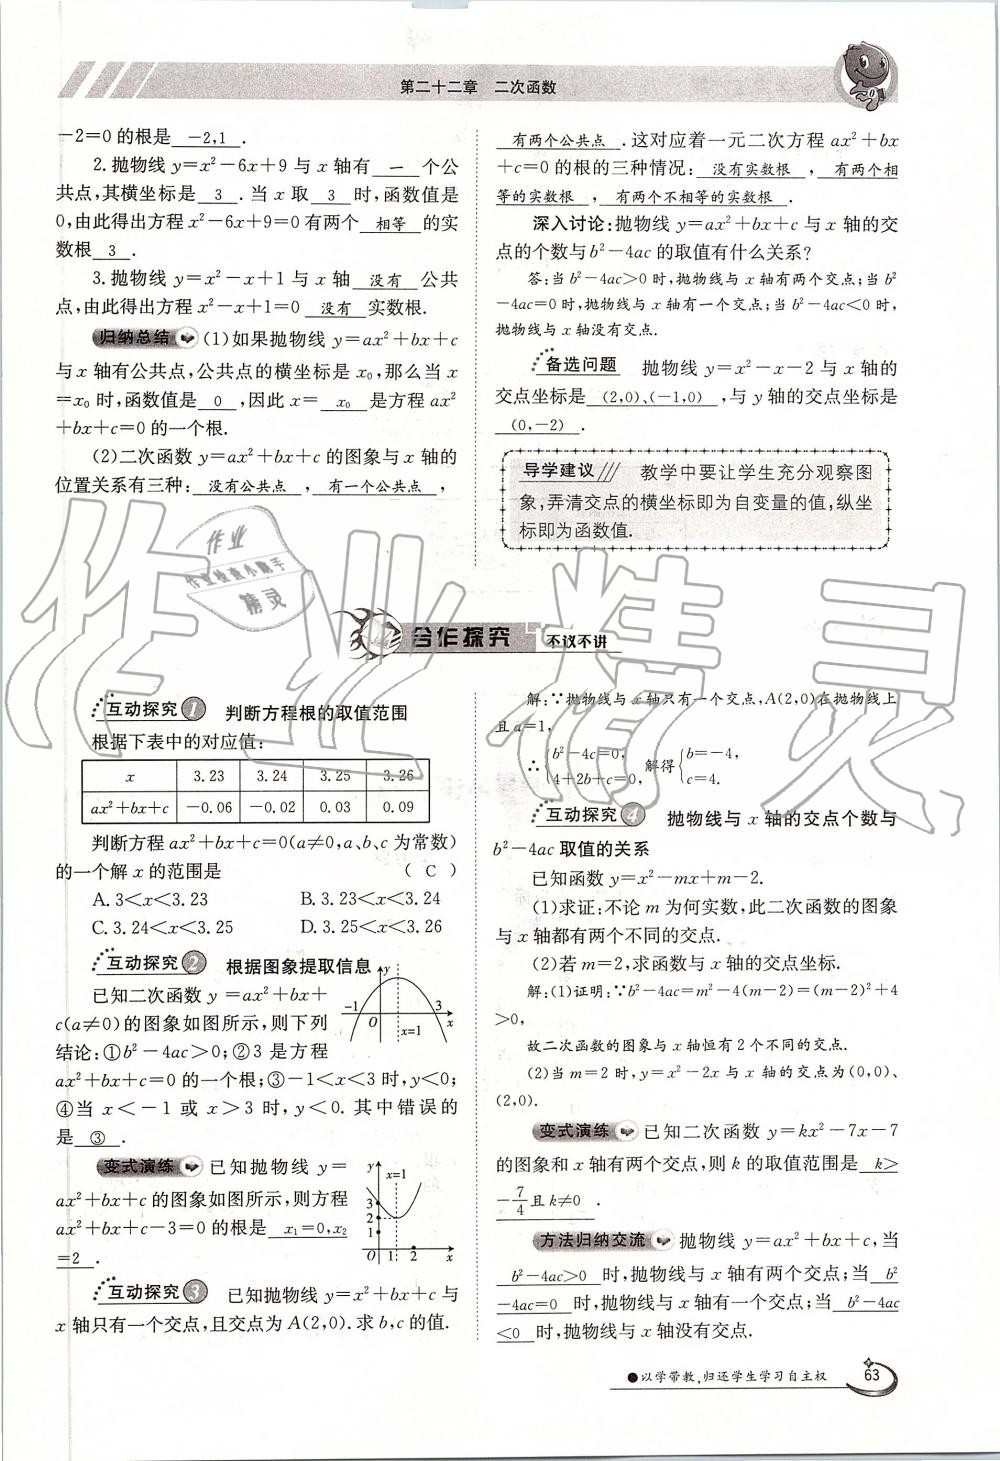 第二十二章 二次函数
-2=0的根是 -2,1 .
2.抛物线y=x²-6x+9与x轴有 一 个公
共点,其横坐标是 3 .当x取 3 时,函数值是
0,由此得出方程x²-6x+9=0有两个 相等 的实
数根 3 .
3.抛物线y=x²-x+1与x轴 没有 公共
点,由此得出方程x²-x+1=0 没有 实数根.
归纳总结 (1)如果抛物线y=ax²+bx+c
与x轴有公共点,公共点的横坐标是x₀,那么当x
=x₀时,函数值是 0 ,因此x= x₀ 是方程ax²
+bx+c=0的一个根.
(2)二次函数y=ax²+bx+c的图象与x轴的
位置关系有三种: 没有公共点 , 有一个公共点 ,
有两个公共点 .这对应着一元二次方程ax²+bx
+c=0的根的三种情况: 没有实数根 , 有两个相
等的实数根 , 有两个不相等的实数根 .
深入讨论:抛物线y=ax²+bx+c与x轴的交
点的个数与b²-4ac的取值有什么关系?
答:当b²-4ac>0时,抛物线与x轴有两个交点;当b²
-4ac=0时,抛物线与x轴有一个交点;当b²-4ac<0时,
抛物线与x轴没有交点.
备选问题 抛物线y=x²-x-2与x轴的
交点坐标是 (2,0)、(-1,0) ,与y轴的交点坐标是
(0,-2) .
导学建议 教学中要让学生充分观察图
象,弄清交点的横坐标即为自变量的值,纵坐
标即为函数值.
作业
作业检查小助手
精灵
作业精灵
合作探究 不议不讲
互动探究1 判断方程根的取值范围
根据下表中的对应值:
x 3.23 3.24 3.25 3.26
ax²+bx+c -0.06 -0.02 0.03 0.09
判断方程ax²+bx+c=0(a≠0,a、b、c为常数)
的一个解x的范围是 ( C )
A.3<x<3.23 B.3.23<x<3.24
C.3.24<x<3.25 D.3.25<x<3.26
互动探究2 根据图象提取信息
已知二次函数y=ax²+bx+
c(a≠0)的图象如图所示,则下列
结论:①b²-4ac>0;②3是方程
ax²+bx+c=0的一个根;③-1<x<3时,y<0;
④当x<-1或x>3时,y<0.其中错误的
是 ③ .
y
-1 O 3 x
x=1
变式演练 已知抛物线y=
ax²+bx+c的图象如图所示,则方程
ax²+bx+c-3=0的根是 x₁=0,x₂
=2 .
y
x=1
3
2
1
O 1 2 x
互动探究3 已知抛物线y=x²+bx+c与
x轴只有一个交点,且交点为A(2,0).求b,c的值.
解:∵抛物线与x轴只有一个交点,A(2,0)在抛物线上
且a=1,
∴{b²-4c=0, 4+2b+c=0, 解得{b=-4, c=4.
互动探究4 抛物线与x轴的交点个数与
b²-4ac取值的关系
已知函数y=x²-mx+m-2.
(1)求证:不论m为何实数,此二次函数的图象
与x轴都有两个不同的交点.
(2)若m=2,求函数与x轴的交点坐标.
解:(1)证明:∵b²-4ac=m²-4(m-2)=(m-2)²+4
>0,
故二次函数的图象与x轴恒有2个不同的交点.
(2)当m=2时,y=x²-2x与x轴的交点为(0,0)、
(2,0).
变式演练 已知二次函数y=kx²-7x-7
的图象和x轴有两个交点,则k的取值范围是 k>
-7/4且k≠0 .
方法归纳交流 抛物线y=ax²+bx+c,当
b²-4ac>0 时,抛物线与x轴有两个交点;当 b²
-4ac=0 时,抛物线与x轴有一个交点;当 b²-4ac
<0 时,抛物线与x轴没有交点.
●以学带教,归还学生学习自主权
63